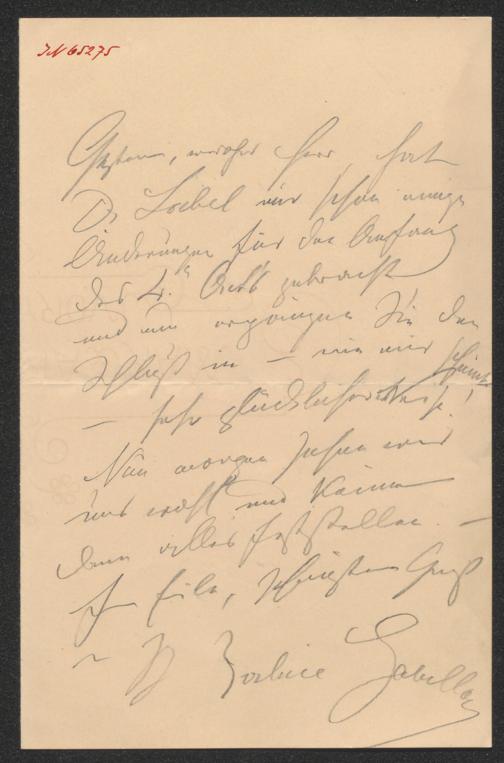 IN 65275
Gestern, werther Herr, hat
Dr Loebel mir schon einige
Änderungen für den Anfang
des 4. Akts gebracht
und nun ergänzen Sie den
Schluß in – wie mir scheint
– sehr glücklicher Weise!
Nun morgen sehen wir
uns wohl und können
dann alles feststellen. –
In Eile, schönsten Gruß
Zerline Gabillon